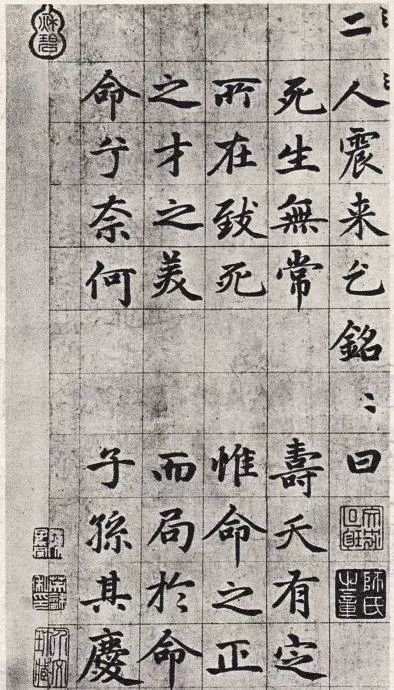 二人震来乞銘〻曰
死生無常 壽夭有定
所在致死 惟命之正
之才之美 而局於命
命兮奈何 子孫其慶